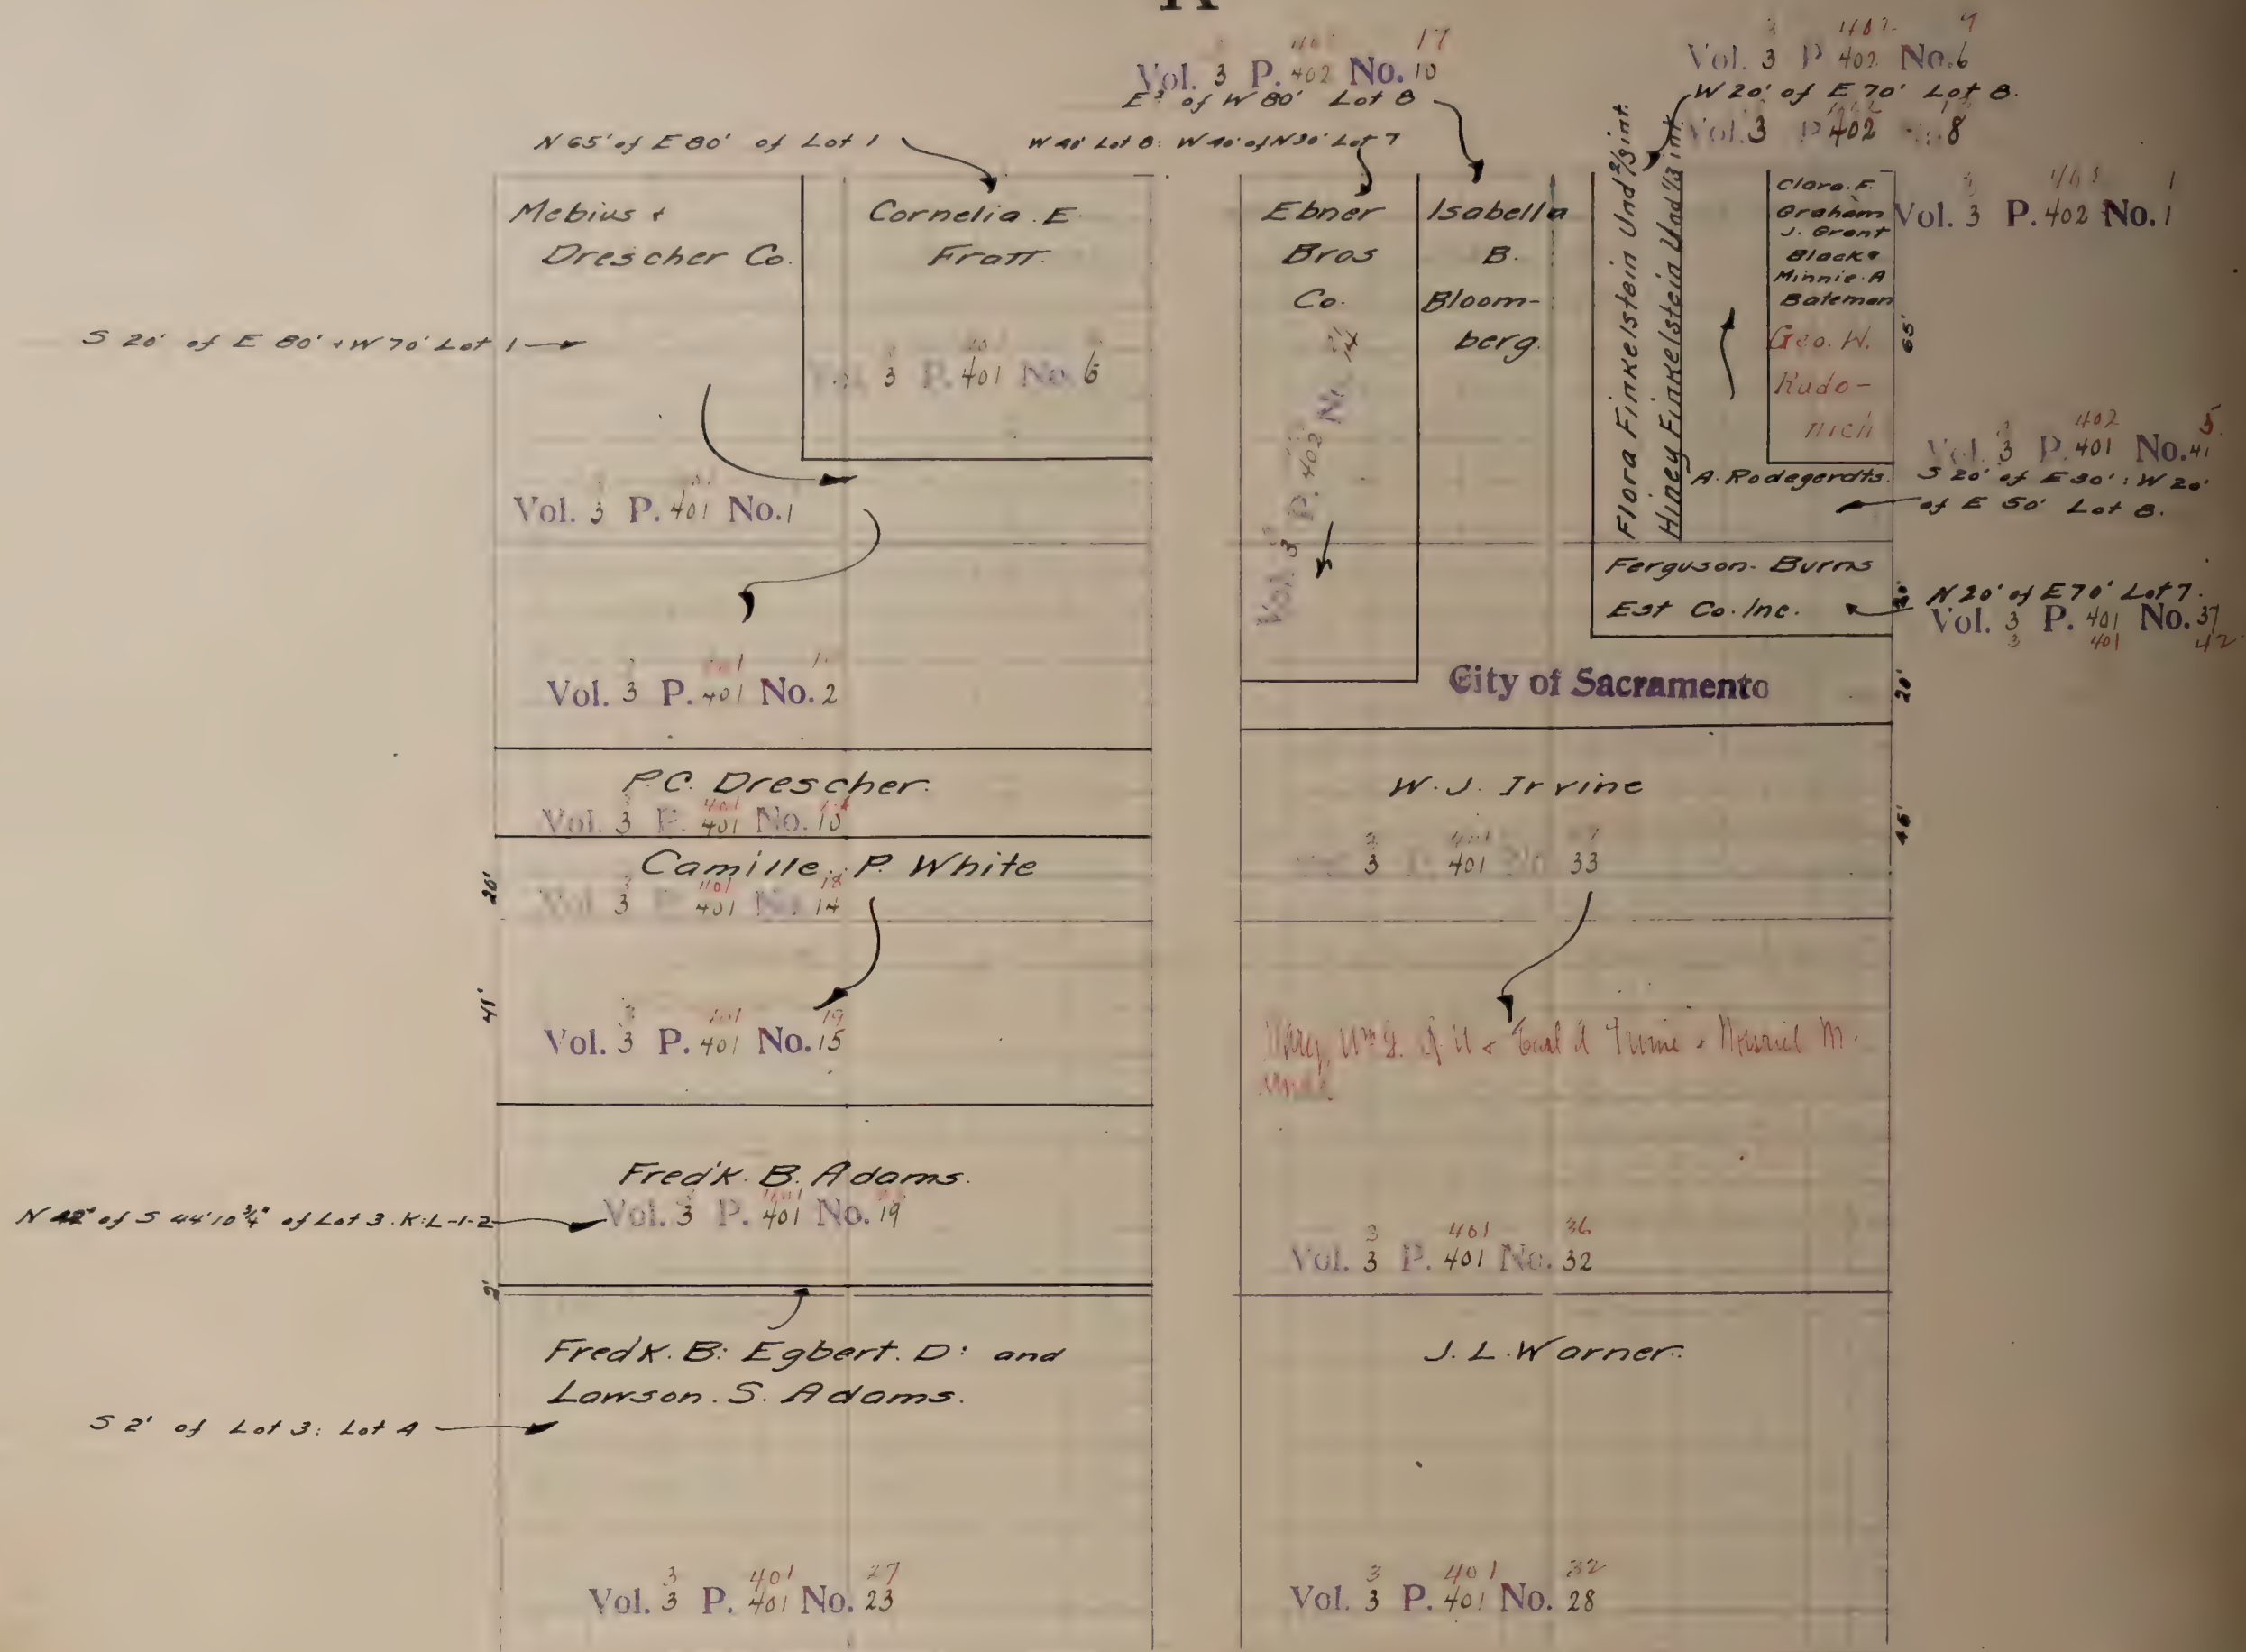 K
17
Vol. 3 P. 402 No. 10
E of W 80' Lot 8
402 9
Vol. 3 P 402 No. 6
W 20' of E 70' Lot 8.
Vol. 3 P 402 8
N 65' of E 80' of Lot 1
W 40' Lot 8: W 40' of N 30' Lot 7
Mebius &
Drescher Co.
Cornelia. E.
Fratt.
3 P. 401 No. 6
S 20' of E 80' & W 70' Lot 1
Vol. 3 P. 401 No. 1
Vol. 3 P. 401 No. 2
Ebner
Bros
Co.
Vol. 3 P. 402 No. 14
Isabella
B.
Bloom-
berg.
Flora Finkelstein Und 2/3 int.
Hiney Finkelstein Und 1/3 int.
Clara. F.
Graham
J. Grant
Black &
Minnie. A
Bateman
Geo. W.
Kudo-
nich
65'
1
Vol. 3 P. 402 No. 1
402 5
Vol. 3 P. 401 No. 41
A. Rodegerdts.
S 20' of E 30': W 20'
of E 50' Lot 8.
Ferguson- Burns
Est Co. Inc.
N 20' of E 70' Lot 7.
Vol. 3 P. 401 No. 37
3 401 42
City of Sacramento
20'
P.C. Drescher.
401
Vol. 3 P. 401 No. 10
Camille. P. White
20'
401 18
Vol. 3 P. 401 No. 14
41'
401 19
Vol. 3 P. 401 No. 15
W. J. Irvine
46'
3 P. 401 No. 33
Fred'k. B. Adams.
401
Vol. 3 P. 401 No. 19
N 42' of S 44' 10 3/4" of Lot 3. K: L-1-2
2'
3 401 36
Vol. 3 P. 401 No. 32
Fred K. B: Egbert. D: and
Lawson. S. Adams.
S 2' of Lot 3: Lot 4
J. L. Warner.
3 401 27
Vol. 3 P. 401 No. 23
3 401 32
Vol. 3 P. 401 No. 28